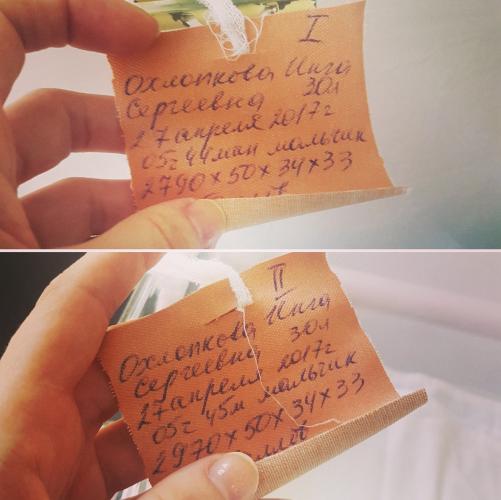 I
Охлопкова Инга
Сергеевна 30л
27 апреля 2017г
05ч 44мин мальчик
2790х50х34х33
II
Охлопкова Инга
Сергеевна 30л
27 апреля 2017г
05ч 45м мальчик
2970х50х34х33